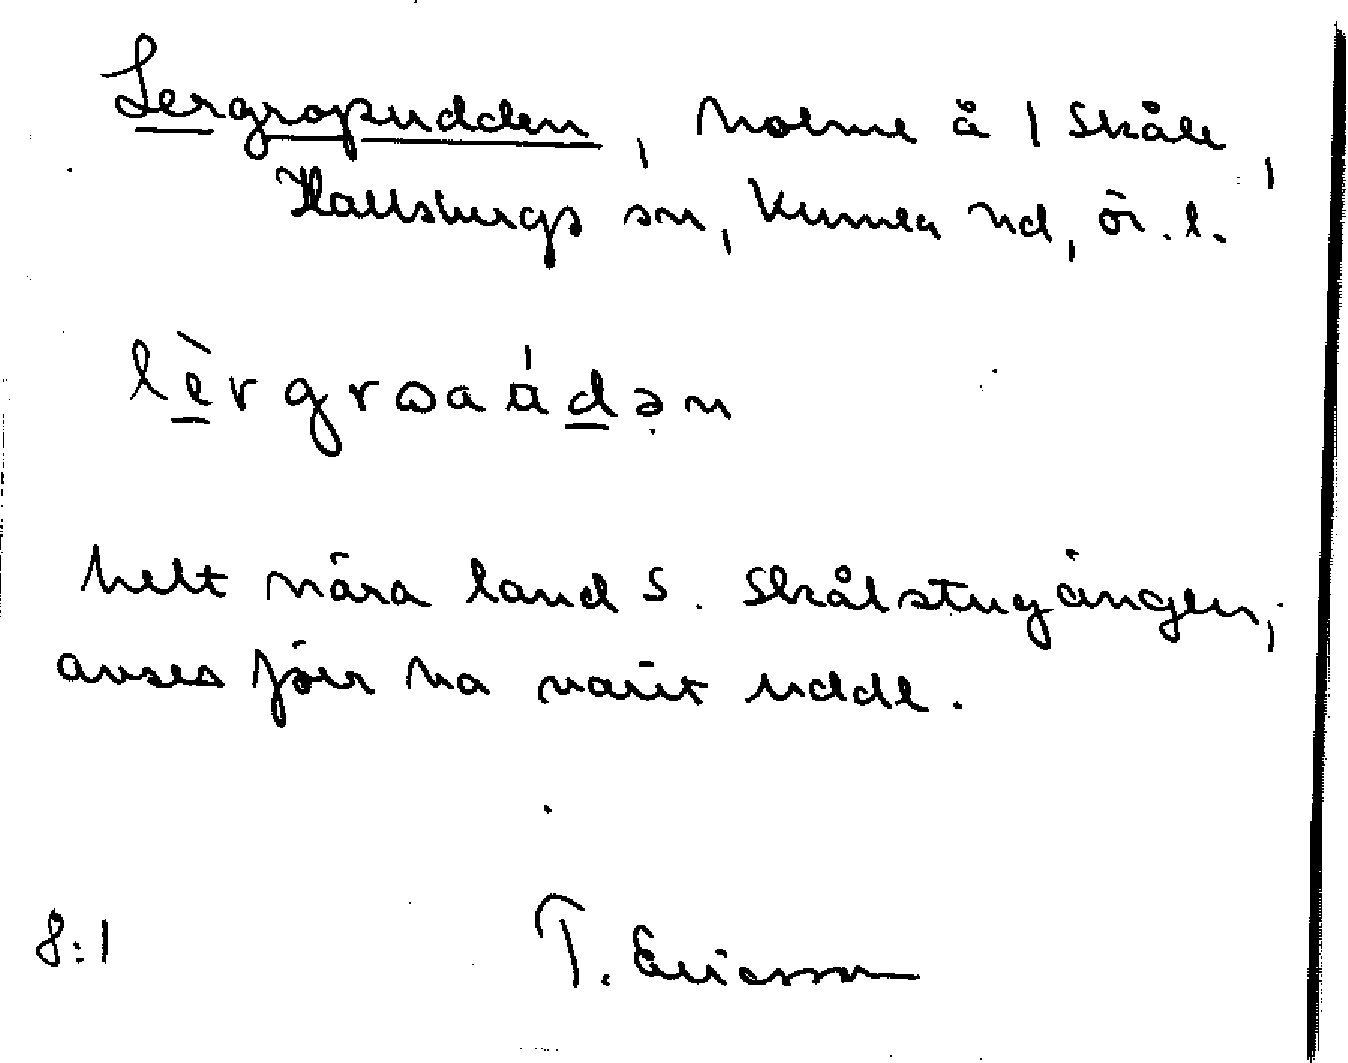 Lergropudden, holme å 1 Skåle,
Hallsbergs sn, Kumla hd, Ör. l.
lèrgrωaádən
helt nära land S. Skålstugängen;
anses förr ha varit udde.
8:1 T. Ericsson